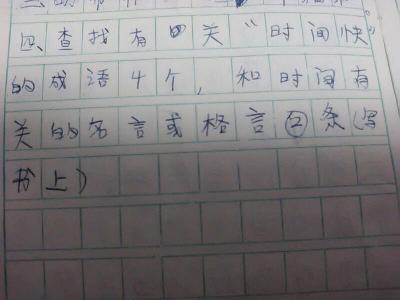 四、查找有关“时间快”
的成语4个，和时间有
关的名言或格言②条（写
书上）